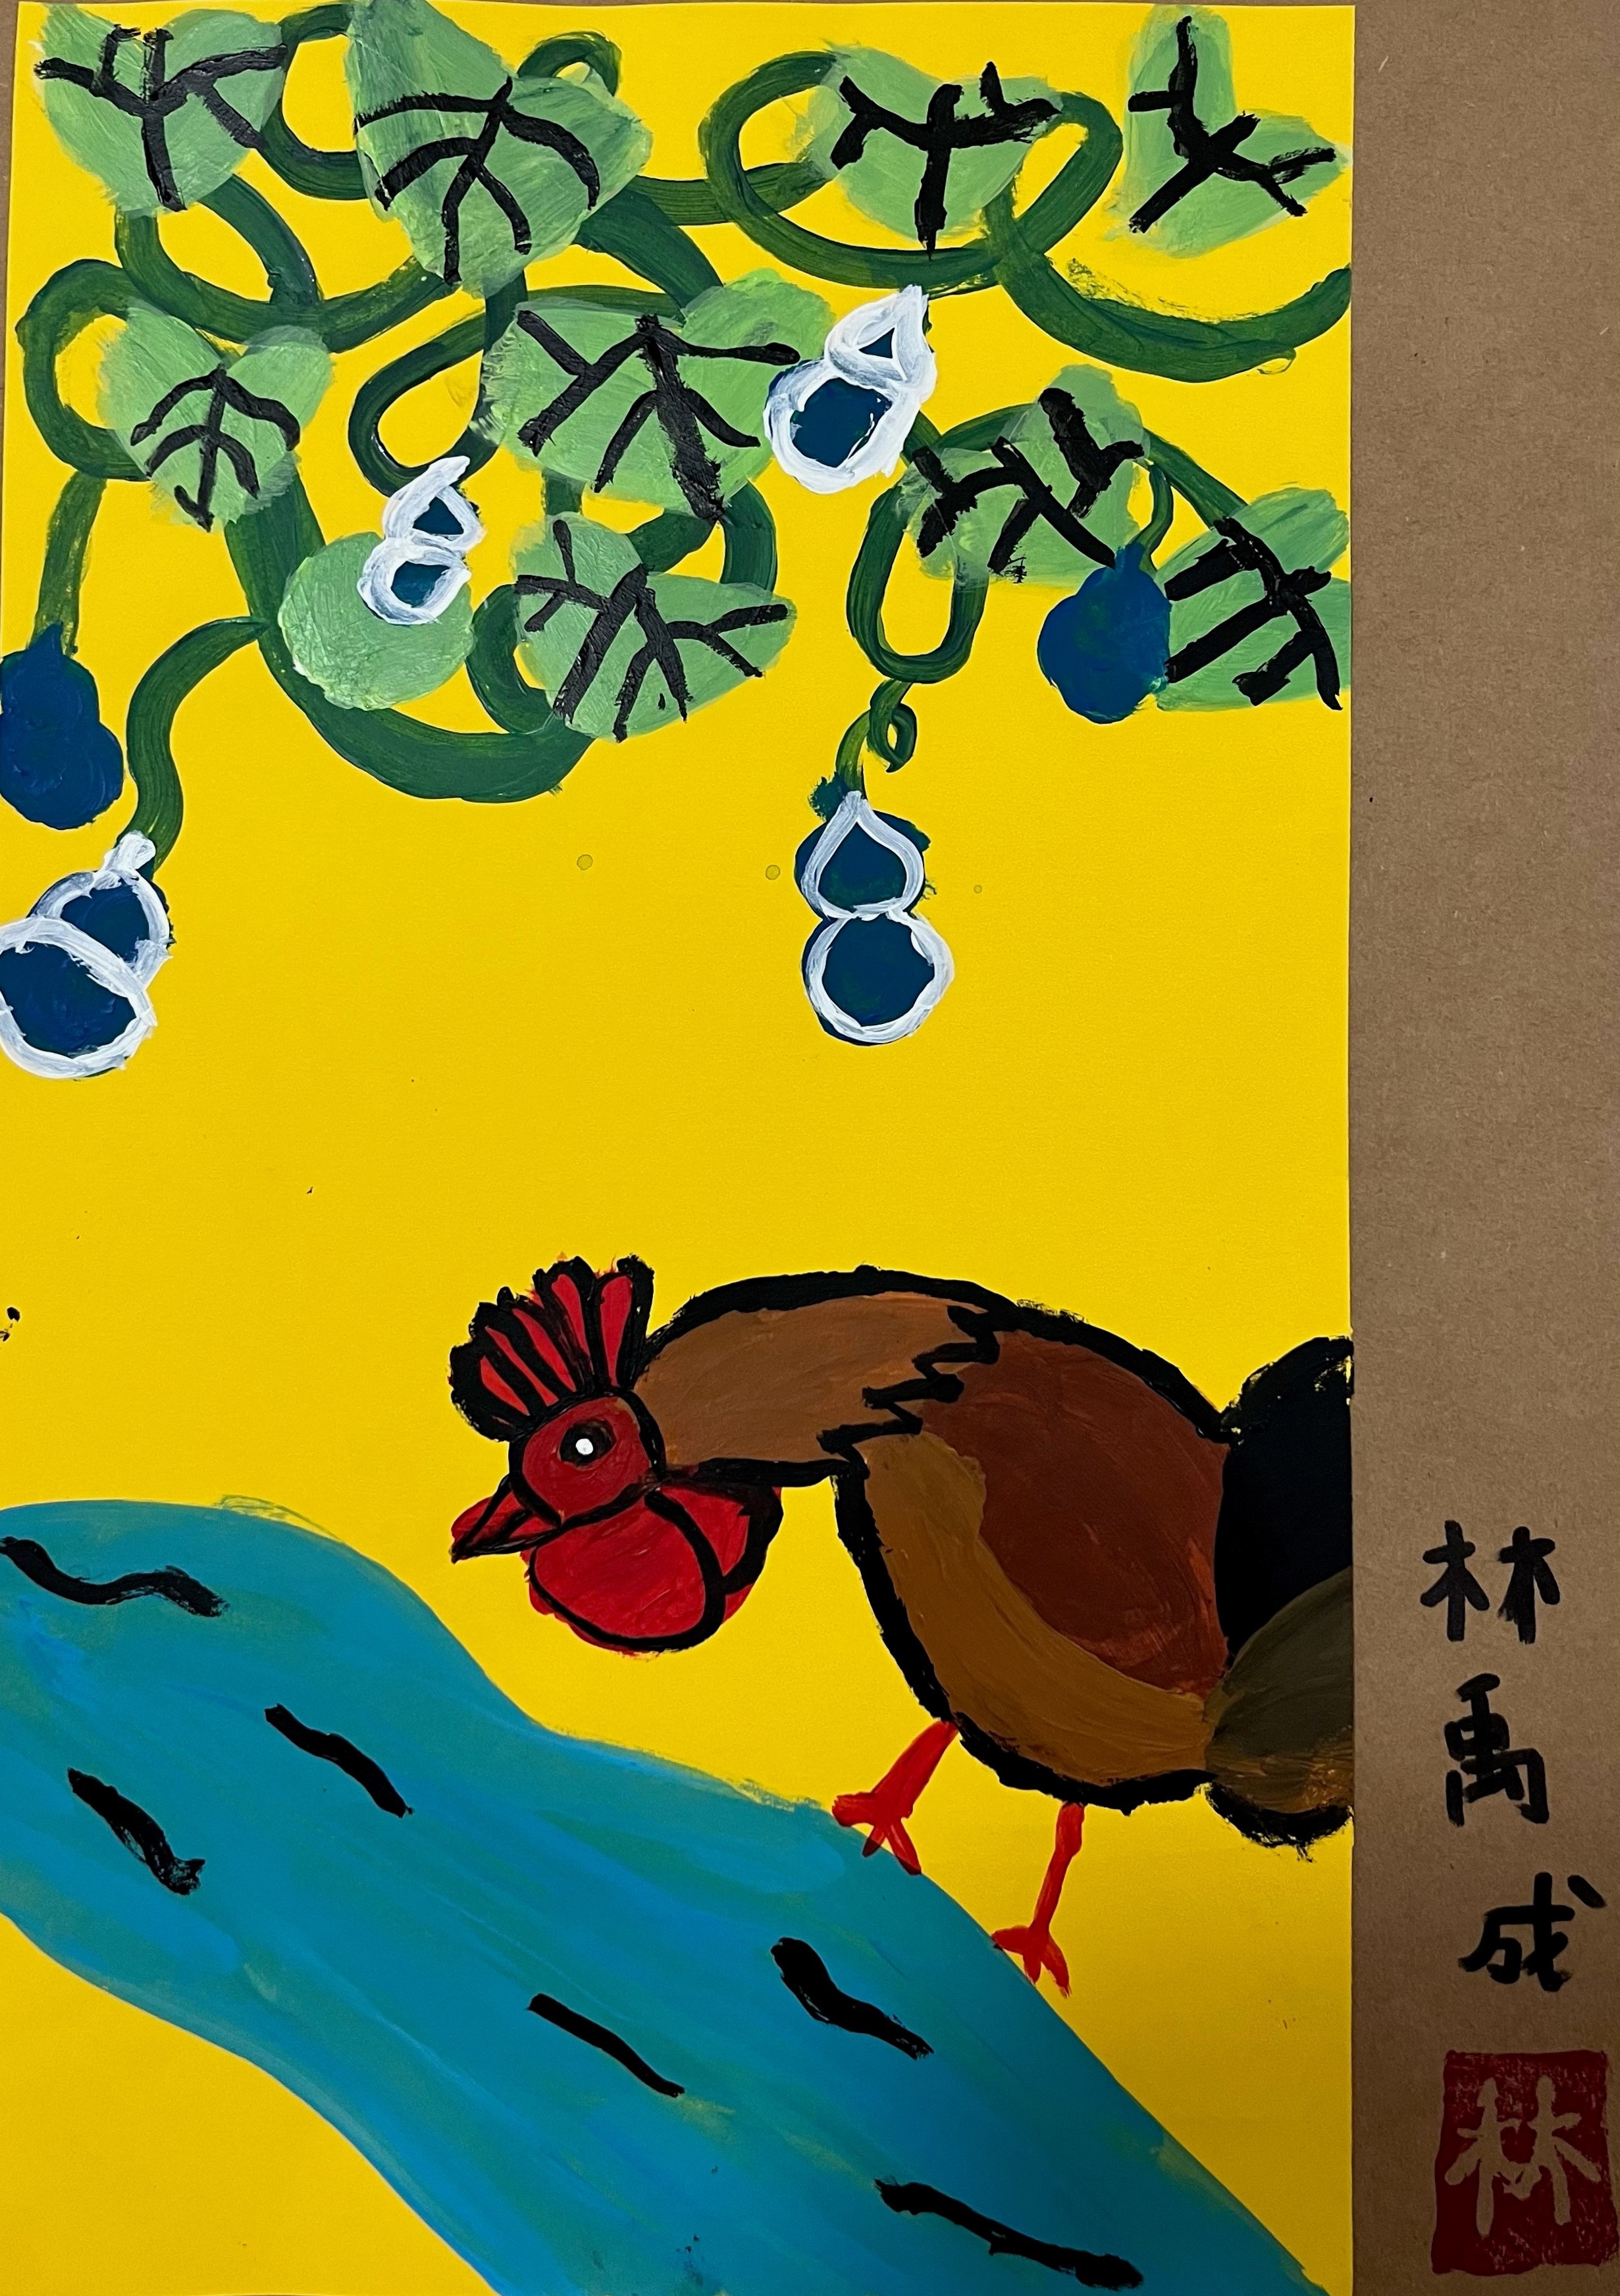 林禹成
林